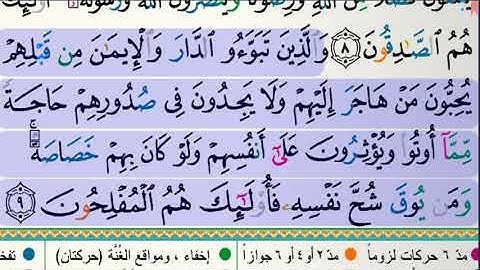 هُمُ الصَّادِقُونَ ٨ وَالَّذِينَ تَبَوَّءُو الدَّارَ وَالْإِيمَانَ مِن قَبْلِهِمْ
يُحِبُّونَ مَنْ هَاجَرَ إِلَيْهِمْ وَلَا يَجِدُونَ فِي صُدُورِهِمْ حَاجَةً
مِّمَّآ أُوتُوا وَيُؤْثِرُونَ عَلَىٰٓ أَنفُسِهِمْ وَلَوْ كَانَ بِهِمْ خَصَاصَةٌ ۚ
وَمَن يُوقَ شُحَّ نَفْسِهِ فَأُولَٰٓئِكَ هُمُ الْمُفْلِحُونَ ٩
مدّ ٦ حركات لزوماً مدّ ٢ أو ٤ أو ٦ جوازاً إخفاء ، ومواقع الغُنَّة (حركتان)